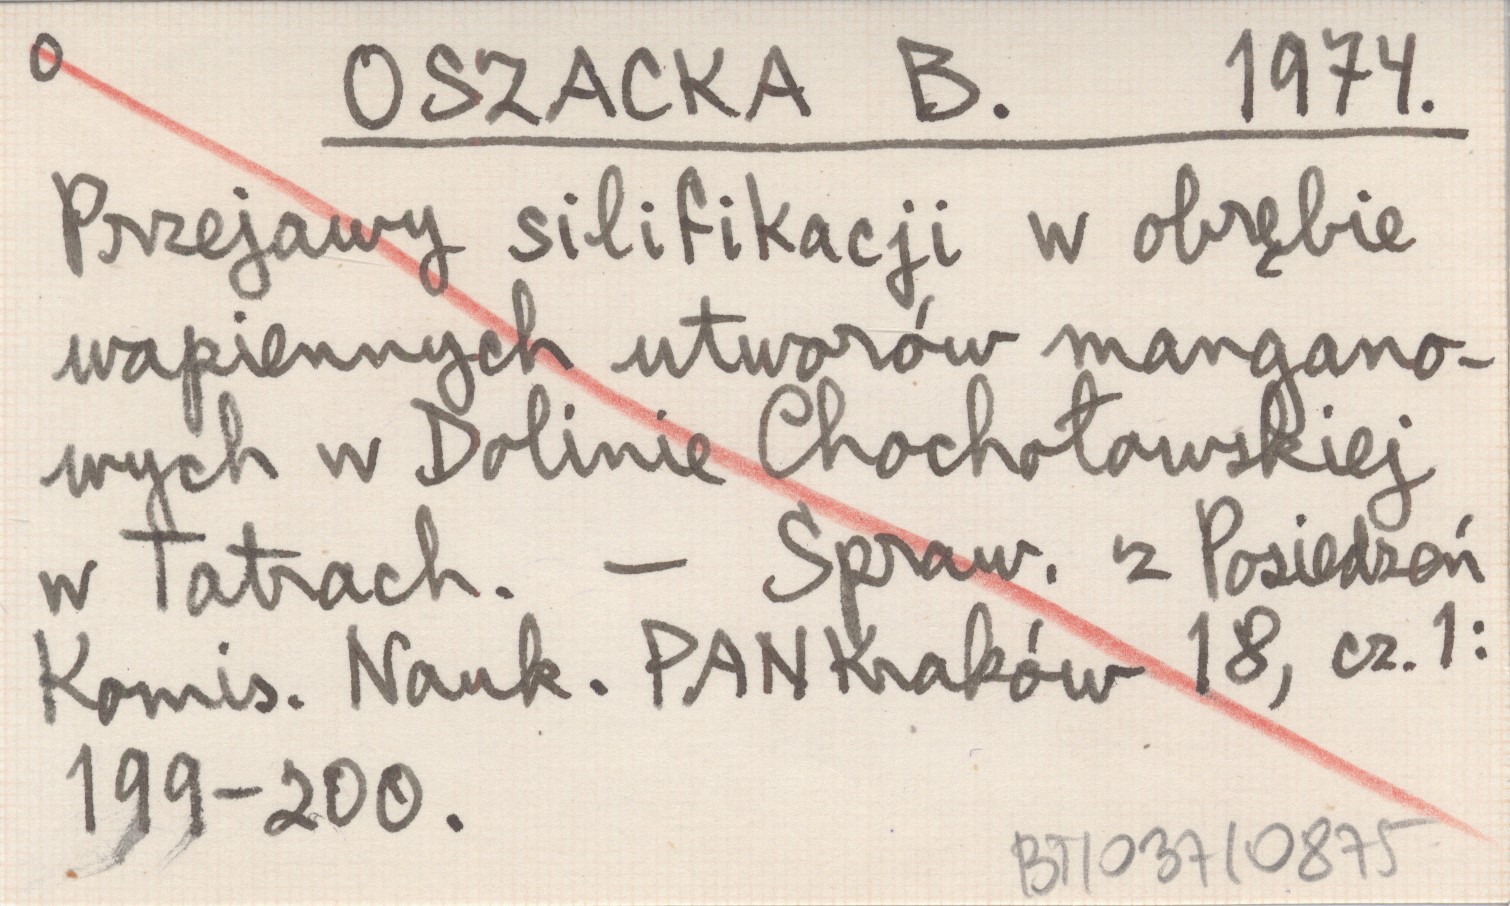 O OSZACKA B. 1974.
Przejawy silifikacji w obrębie
wapiennych utworów mangano-
wych w Dolinie Chochołowskiej
w Tatrach. - Spraw. z Posiedzeń
Komis. Nauk. PAN Kraków 18, cz. 1:
199-200.
BT/037/0875